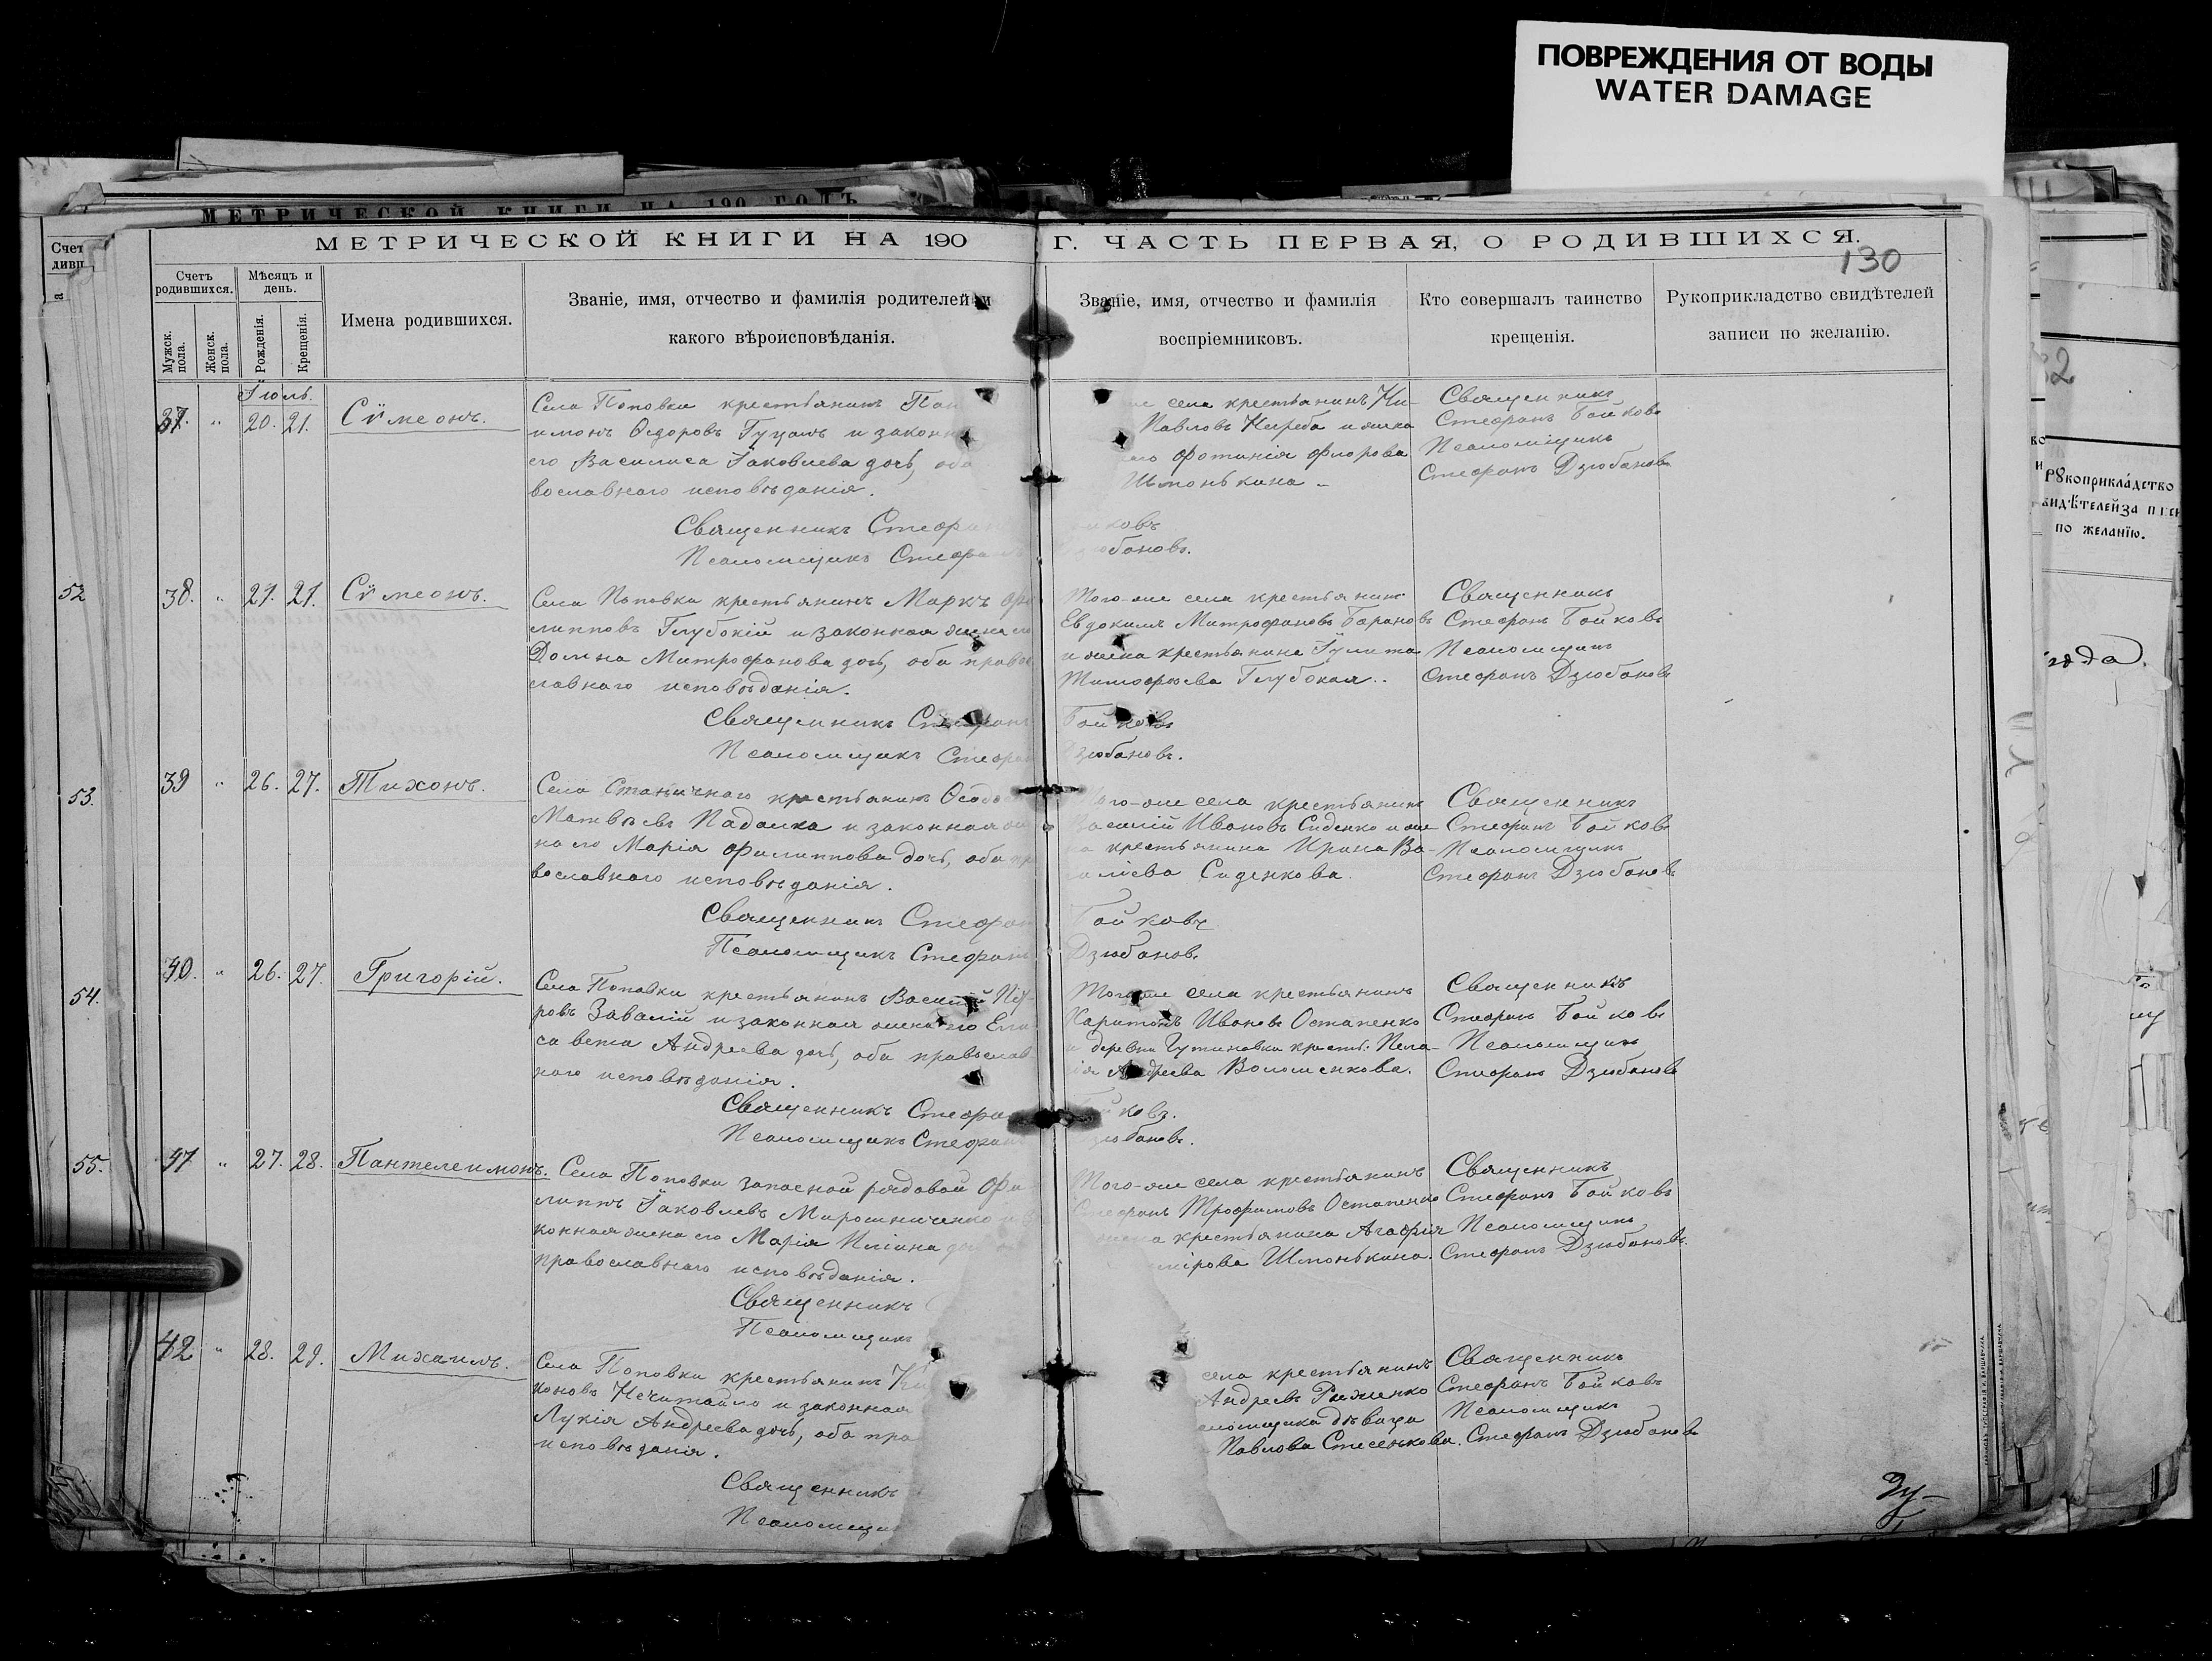 ПОВРЕЖДЕНИЯ ОТ ВОДЫ
WATER DAMAGE
МЕТРИЧЕСКОЙ КНИГИ НА 190 ГОДЪ
МЕТРИЧЕСКОЙ КНИГИ НА 190 Г. ЧАСТЬ ПЕРВАЯ, О РОДИВШИХСЯ.
130
Счетъ родившихся.
Мужск. пола.
Женск. пола.
Мѣсяцъ и день.
Рожденія.
Крещенія.
Имена родившихся.
Званіе, имя, отчество и фамилія родителей и
какого вѣроисповѣданія.
Званіе, имя, отчество и фамилія
воспріемниковъ.
Кто совершалъ таинство
крещенія.
Рукоприкладство свидѣтелей
записи по желанію.
Іюль.
37. " 20. 21. Сѵмеонъ.
Села Поповки крестьянинъ Пан
имонъ Ѳедоровъ Гуцалъ и законн
его Василиса Іаковлева дочь, оба
вославнаго исповѣданія.
Священникъ Стефан
Псаломщикъ Стефан
села крестьянинъ Ки-
Павловъ Негреба и жена
Фотинія Флорова
Шмонькина
Священникъ
Стефанъ Бойковъ
Псаломщикъ
Стефанъ Дзюбановъ
ковъ
бановъ.
52
38. " 21. 21. Сѵмеонъ.
Села Поповки крестьянинъ Маркъ Фи
липповъ Глубокій и законная жена его
Домна Митрофанова дочь, оба право
славнаго исповѣданія.
Священникъ Стефанъ
Псаломщикъ Стефан
Того-же села крестьянинъ
Евдокимъ Митрофановъ Барановъ
и жена крестьянина Іулита
Тимофѣева Глубокая.
Священникъ
Стефанъ Бойковъ
Псаломщикъ
Стефанъ Дзюбановъ
Бойковъ
Дзюбановъ.
53.
39 " 26. 27. Тихонъ.
Села Станичнаго крестьянинъ Ѳеодо
Матвѣевъ Падалка и законная же
на его Марія Филиппова дочь, оба пра
вославнаго исповѣданія.
Священникъ Стефан
Псаломщикъ Стефанъ
Того-же села крестьянинъ
Василій Ивановъ Сиденко и же
на крестьянина Ирина Ва-
силіева Сиденкова.
Священникъ
Стефанъ Бойковъ
Псаломщикъ
Стефанъ Дзюбановъ
Бойковъ
Дзюбановъ.
54.
40. " 26. 27. Григорій.
Села Поповки крестьянинъ Василій Пет-
ровъ Завалій и законная жена его Ели
савета Андреева дочь, оба православ
наго исповѣданія.
Священникъ Стефан
Псаломщикъ Стефан
Того-же села крестьянинъ
Харитонъ Ивановъ Остапенко
деревни крест. Пела-
гія Андреева Волошенкова.
Священникъ
Стефанъ Бойковъ
Псаломщикъ
Стефанъ Дзюбановъ
Бойковъ.
Дзюбановъ.
55.
41 " 27. 28. Пантелеимонъ.
Села Поповки запасной рядовой Фи
липпъ Іаковлевъ Мирошниченко и за
конная жена его Марія Иліина до
православнаго исповѣданія.
Священникъ
Псаломщикъ
Того-же села крестьянинъ
Стефанъ Трофимовъ Остапенко
жена крестьянина Агафія
мірова Шмонькина.
Священникъ
Стефанъ Бойковъ
Псаломщикъ
Стефанъ Дзюбановъ.
42 " 28. 29. Михаилъ.
Села Поповки крестьянинъ Ни
коновъ Нечитайло и законная
Лукія Андреева дочь, оба пра
исповѣданія.
Священникъ
Псаломщи
села крестьянинъ
Андреевъ Рыженко
саломщика дѣвица
Павлова Стесенкова.
Священникъ
Стефанъ Бойковъ
Псаломщикъ
Стефанъ Дзюбановъ
Рꙋкоприкла́дство
по желанїю.
года.